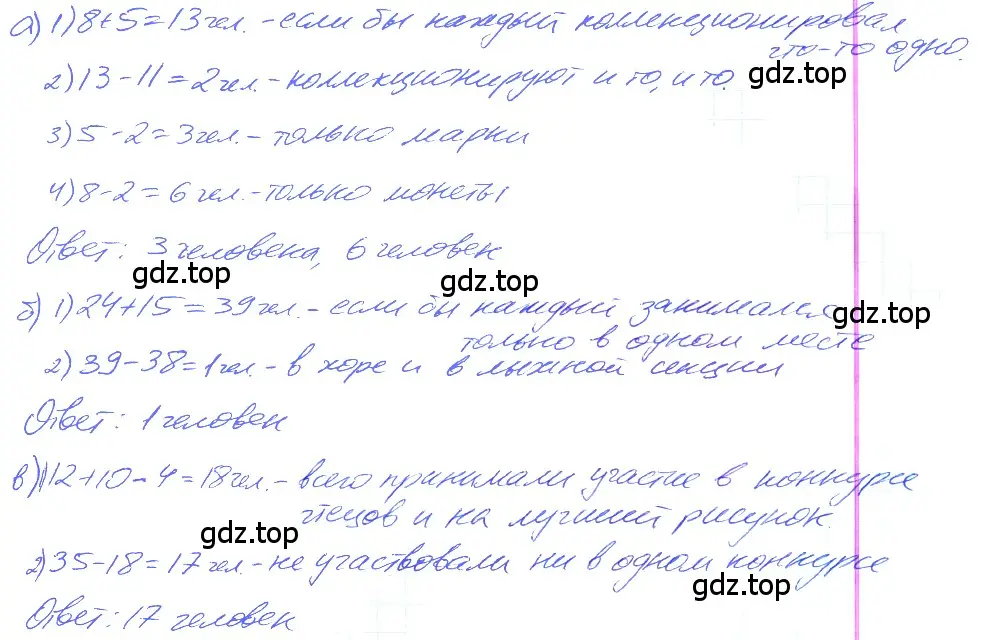 а) 1) 8+5=13 чел. - если бы каждый коллекционировал
что-то одно.
gdz.top
2) 13 - 11 = 2 чел. - коллекционируют и то, и то.
3) 5 - 2 = 3 чел. - только марки
4) 8 - 2 = 6 чел. - только монеты
Ответ: 3 человека, 6 человек
gdz.top
gdz.top
б) 1) 24+15=39 чел. - если бы каждый занимался
gdz.top
только в одном месте
2) 39-38=1 чел. - в хоре и в лыжной секции
Ответ: 1 человек
в) 1) 12+10-4=18 чел. - всего принимали участие в конкурсе
чтецов и на лучший рисунок.
gdz.top
2) 35-18=17 чел. - не участвовали ни в одном конкурсе
gdz.top
Ответ: 17 человек